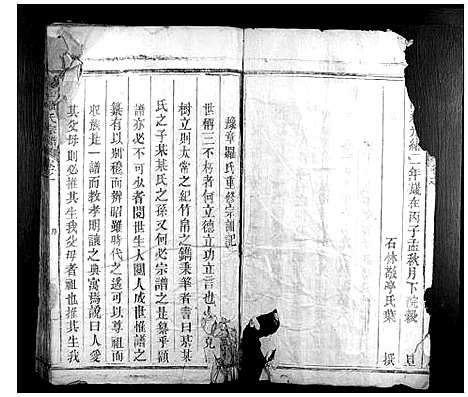 光緒二年歲在丙子孟秋月下浣穀旦
石林敬亭氏葉 撰
豫章羅氏重修宗譜記
世稱三不朽者何立德立功立言也
樹立則太常之紀竹帛之鐫秉筆者書曰某某
氏之子某某氏之孫又何必宗譜之是纂乎顧
譜亦必不可少者閱世生人閱人成世惟譜之
纂有以別穆而辨昭雖時代之遙可以尊祖而
收族是一譜而教孝明讓之典寓焉說曰人愛
其父母則必推其生我父母者祖也推其生我